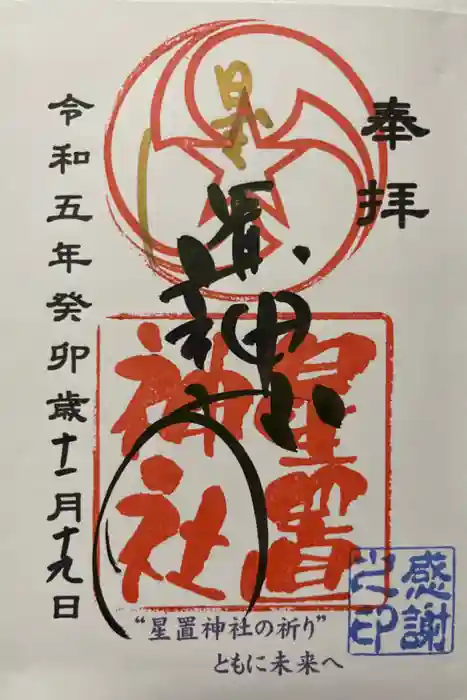 奉拝
星置神社
星置神社
令和五年癸卯歳十一月十九日
感謝之印
“星置神社の祈り”
ともに未来へ